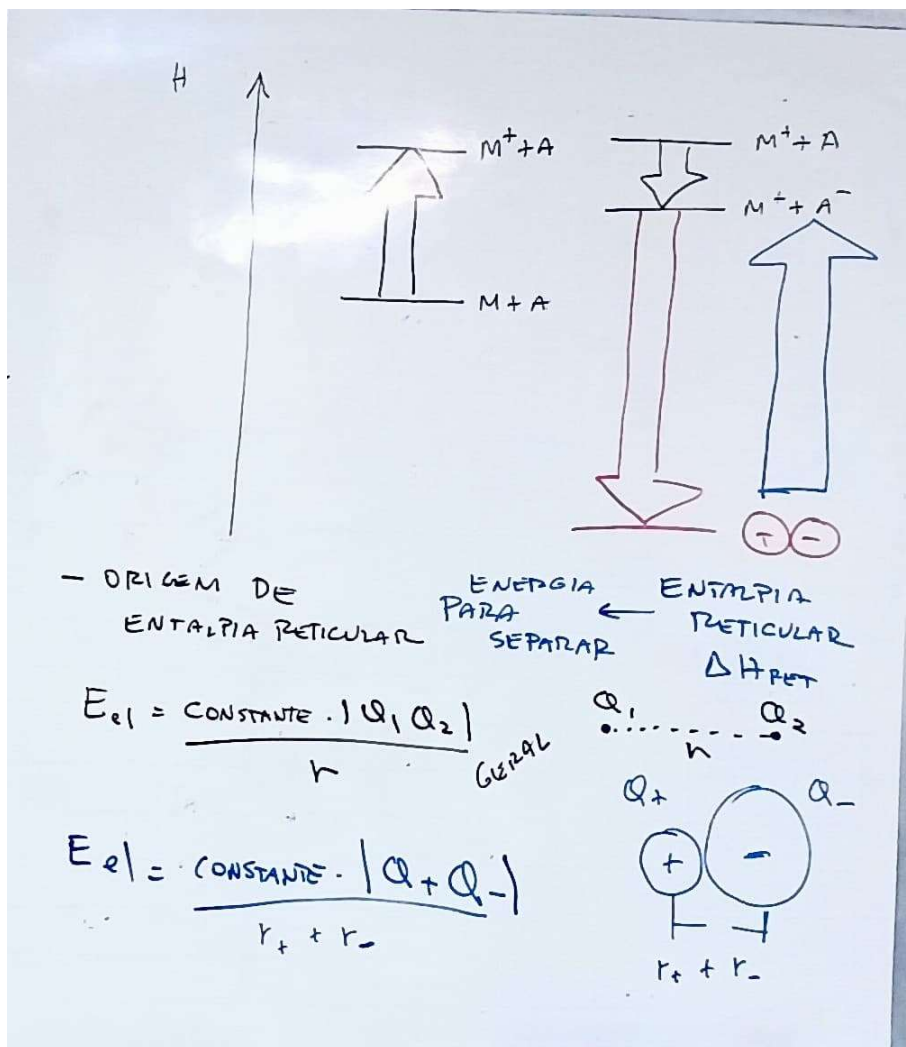 H
M⁺+A
M+A
M⁺+A
M⁺+A⁻
+ -
- ORIGEM DE
ENTALPIA RETICULAR
ENERGIA
PARA
SEPARAR
←
ENTALPIA
RETICULAR
ΔH RET
E el = CONSTANTE . |Q₁ Q₂|
r
GERAL
Q₁ Q₂
r
Q+ Q-
+ -
E el = CONSTANTE . |Q+ Q-|
r₊ + r₋
r₊ + r₋